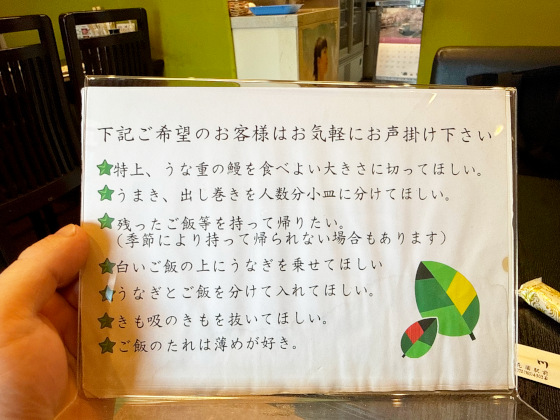 下記ご希望のお客様はお気軽にお声掛け下さい
特上、うな重の鰻を食べよい大きさに切ってほしい。
うまき、出し巻きを人数分小皿に分けてほしい。
残ったご飯等を持って帰りたい。
(季節により持って帰られない場合もあります)
白いご飯の上にうなぎを乗せてほしい
うなぎとご飯を分けて入れてほしい。
きも吸のきもを抜いてほしい。
ご飯のたれは薄めが好き。